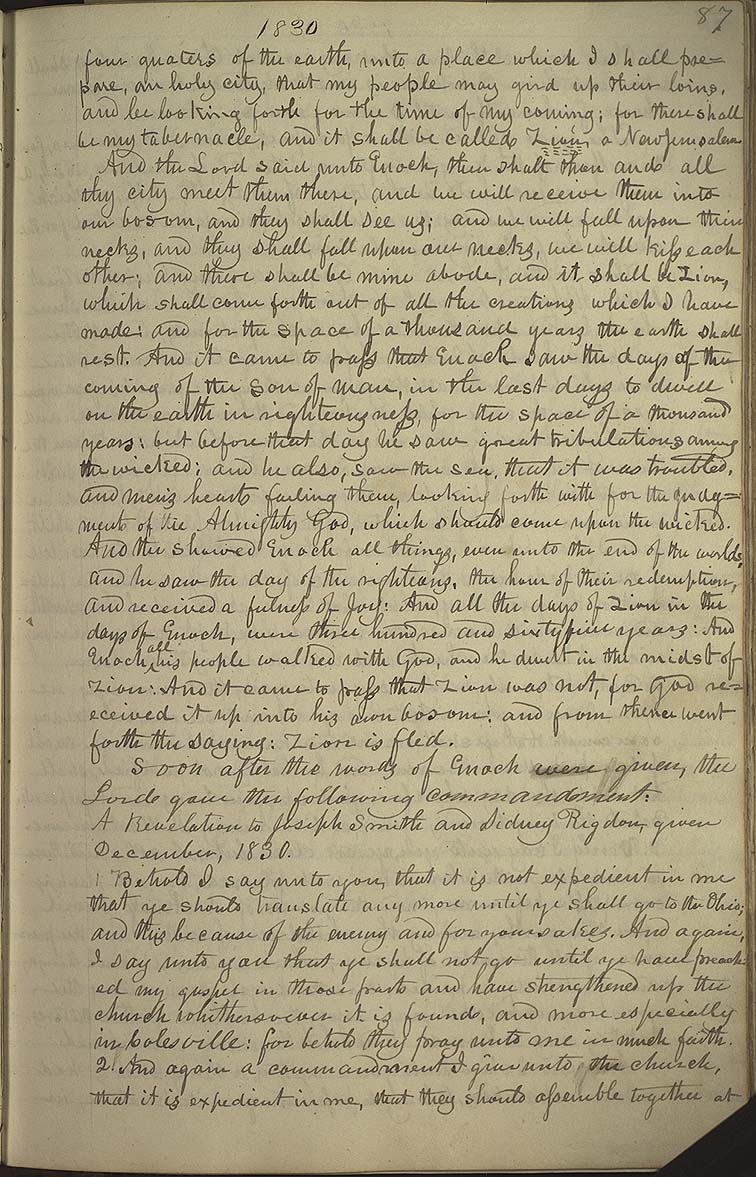 1830
87
four quaters of the earth, unto a place which I shall pre=
pare, an holy city, that my people may gird up their loins,
and be looking forth for the time of my coming; for there shall
be my tabernacle, and it shall be called Zion, a New Jerusalem
And the Lord said unto Enoch, then shalt thou and all
thy city meet them there, and we will receive them into
our bosom, and they shall see us; and we will fall upon their
necks, and they shall fall upon our necks, we will kiss each
other; and there shall be mine abode, and it shall be Zion,
which shall come forth out of all the creations which I have
made: and for the space of a thousand years the earth shall
rest. And it came to pass that Enoch saw the days of the
coming of the son of man, in the last days to dwell
on the earth in righteousness, for the space of a thousand
years: but before that day he saw great tribulations among
the wicked; and he also, saw the sea, that it was troubled,
and mens hearts failing them, looking forth with for the judg=
ments of the Almighty God, which should come upon the wicked.
And the showed Enoch all things, even unto the end of the world;
and he saw the day of the righteous, the hour of their redemption,
and received a fulness of Joy: And all the days of Zion in the
days of Enoch, were three hundred and sixty five years: And
Enoch all his people walked with God, and he dwelt in the midst of
Zion: And it came to pass that Zion was not, for God re=
eceived it up into his own bosom; and from thence went
forth the saying: Zion is fled.
Soon after the words of Enoch were given, the
Lord gave the following commandment:
A Revelation to Joseph Smith and Sidney Rigdon, given
December, 1830.
1 Behold I say unto you, that it is not expedient in me
that ye should translate any more until ye shall go to the Ohio;
and this because of the enemy and for your sakes. And again,
I say unto you that ye shall not go until ye have preach=
ed my gospel in those parts and have strengthened up the
church whithersoever it is found, and more especially
in Colesville: for behold they pray unto me in much faith.
2 And again a commandment I give unto the church,
that it is expedient in me, that they should assemble together at